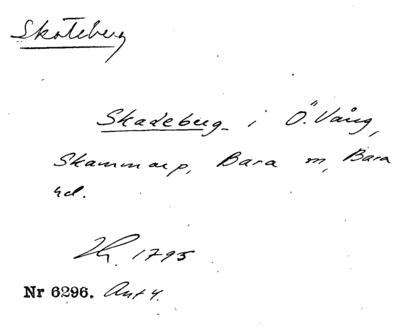 Skateberg
Skadeberg i Ö. Vång,
Skammarp, Bara sn, Bara
hd.
1795
Nr 6296. Ant 4.